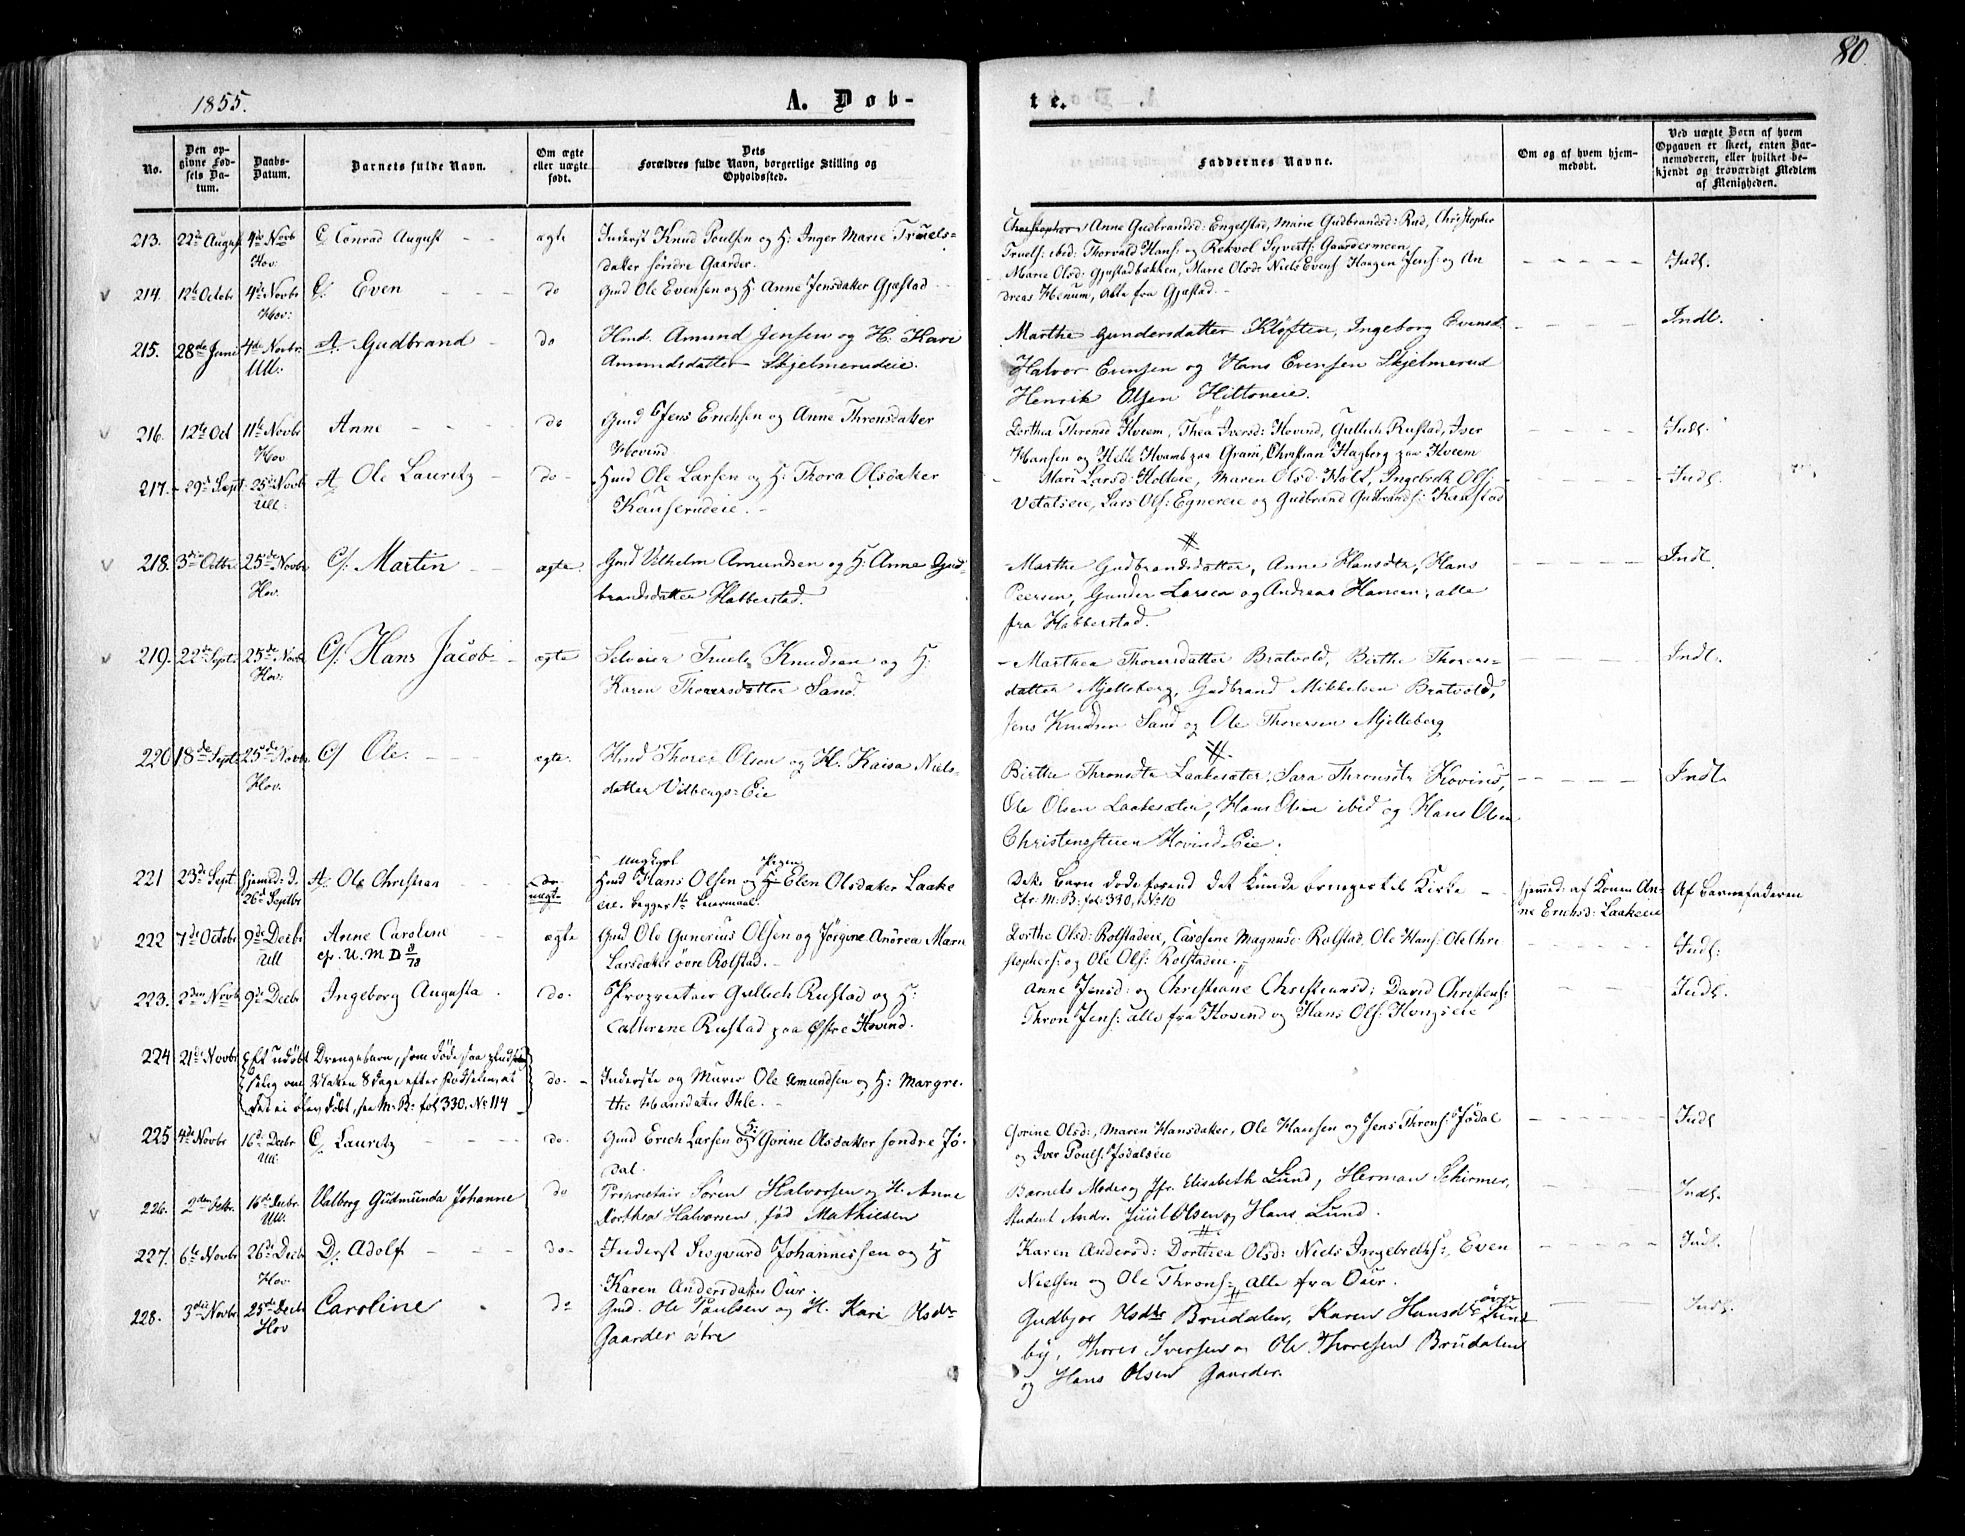 80.
1855.
A. Døb-
te.
No.
Den opgivne Fødsels Datum.
Daabs-Datum.
Barnets fulde Navn.
Om ægte eller uægte født.
Dets Forældres fulde Navn, borgerlige Stilling og Opholdssted.
Faddernes Navne.
Om og af hvem hjemmedøbt.
Ved uægte Børn af hvem Opgaven er skeet, enten Barnemoderen, eller hvilket bekjendt og troværdigt Medlem af Menigheden.
213. 22de August 4de Novb Hov. C/ Conrad August - - ægte Inderst Knud Poulsen og H: Inger Marie Truels-
datter søndre Gaarder.
Anne Gudbrandsd: Engelstad, Marie Gudbrandsd: Rud, Christopher
Truels: ibid: Thorvald Hans: og Rekvol Syverts: Gaardermoen
Indl.
214. 12te Octobr 4de Novbr Hov: C/ Even - - - do Gmd Ole Evensen og H: Anne Jensdatter Gjæstad
Marie Olsd: Gjæstadbakken, Marie Olsdr Niels Evens: Haagen Jens: og An-
dreas Henum, alle fra Gjæstad.
215. 28de Juni 4de Novbr. Ull: A. Gudbrand - do Hmd. Amund Jensen og H: Kari
Amundsdatter Skjelmerudeie.
Marthe Gundersdatter Kløften, Ingeborg Evensd.
Halvor Evensen og Hans Evensen Skjelmerud
Henrik Olsen Hiltoneie.
Indl.
216. 12te Oct 11te Novbr Hov Anne - - - do Gmd Jens Erichsen og Anne Thronsdatter
Hovind
Dorthea Thronsd Hveem, Thea Iversd: Hovind, Gullich Rustad, Iver
Hansen og Helle Hvamb paa Grani, Christian Hagberg paa Hveem
Indl.
217. 29de Sept 25de Novbr Ull: A Ole Lauritz - do - Hmd Ole Larsen og H: Thora Olsdatter
Kauserudeie. -
Mari Larsd: Holteie, Maren Olsd: Holt, Ingebreth Ols:
Lars Ols: Egnereie og Gudbrand Gudbrands: Knustad
Indl.
218. 3die Octbr. 25de Novbr. Hov. C/. Martin - - ægte. Gmd Vilhelm Amundsen og H: Anne Gud-
brandsdatter Habberstad.
Marthe Gudbrandsdatter, Anne Hansdtr, Hans
Peersen, Gunder Larsen og Andreas Hansen, alle
fra Habberstad.
Indl.
219. 22de Septr. 25de Novbr. Hov: C/. Hans Jacob - ægte Selveier Truels Knudsen og H:
Karen Thorersdatter Sand.
- Marthea Thorersdatter Bratvold, Birthe Thorers-
datter Mjelleberg, Gudbrand Mikkelsen Bratvold,
Jens Knudsen Sand og Ole Thorersen Mjelleberg
Indl.
220 18de Septr. 25de Novbr. Hov. C/ Ole. - - - ægte. Hmd Thorer Olsen og H. Kaisa Niels-
datter Vilbergs-Eie
Birthe Thronsdtr Laakesæter, Sara Thronsdtr Hovind,
Ole Olsen Laakesæter, Hans Olsen ibid og Hans Olsen
Christensstuen Hovinds Eie.
Indl.
221 23de Sept hjemmed: d. 26de Septbr A. Ole Christian - - do uægte Ungkarl Hmd Hans Olsen og Pigen H Elen Olsdatter Laake
eie. begges 1ste Leiermaal.
Dette barn døde førend det kunde bringes til Kirke - -
cfr. M: B: fol: 330, No 10
hjemmed: af Konen An-
ne Eriksd: Laakeeie
Af barnefaderen
222 7de Octobr 9de Decbr Ull Anne Caroline cfr. U. M D 8/78 - ægte Gmd Ole Gunerius Olsen og Jørgine Andrea Marn
Larsdatter øvre Rolstad. -
Dorthe Olsd: Rolstadeie, Carolene Magnusd: Rolstad, Ole Hans: Ole Chri-
stophers: og Ole Ols: Rolstadeie.
Indl:
223. 2den Novbr 9de Decbr Ingeborg Augusta. - do. Proprietair Gullich Rustad og H:
Cathrine Rustad paa Østre Hovind.
Anne Jensd: og Christiane Christiansd: David Christens:
Thron Jens: alle fra Hovind og Hans Ols: Hongseie
Indl.
224 21de Novbr Et udøbt Drengebarn, som døde saa pludse-
selig om Natten 8 dage efter Fødselen, at
det ei blev døbt, see M: B: fol 330. No 114
do. - Inderste og Murer Ole Amundsen og H: Margre-
the Hansdatter Ihle. -
225 4de Novbr 16de Decbr Ull. C/ Lauritz - - - do. Gmd Erich Larsen og H: Gorine Olsdatter søndre Jø-
dal.
Gorine Olsd:, Maren Hansdatter, Ole Hansen og Jens Throns: Jødal
og Iver Pouls: Jødalseie
Indl
226. 2den Febr. 16de Decbr. Ull. Valborg Gudmunda Johanne do Proprietair Søren Halvorsen og H. Anne
Dorthea Halvorsen, fød Mathiesen
Barnets Moder og Jfr. Elisabeth Lund, Herman Schirmer,
Student Andr. Juul Olsen og Hans Lund.
Indl.
227. 6te Novbr 26de Decb Hov. D. Adolf - - - do - Inderst Seigvard Johannessen og H
Karen Andersdatter Ouer.
Karen Andersd: Dorthea Olsd: Niels Ingebreths:, Even
Nielsen og Ole Throns: alle fra Ouer.
Indl.
228. 3die Novbr 25de Decbr Hov Caroline - Do Gmd. Ole Paulsen og H. Kari Olsdtr
Gaarder østre
Gudbjør Olsdtr Brudalen, Karen Hansdtr øvre Lund-
by, Thorer Iversen og Ole Thoresen Brudalen
og Hans Olsen Gaarder.
Indl.